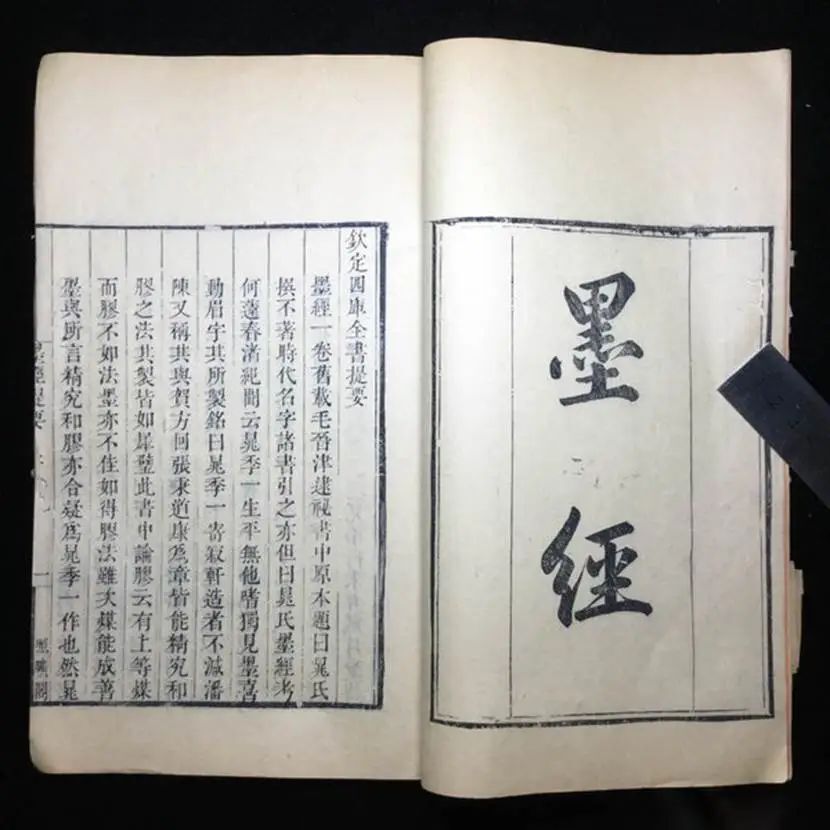 墨經
欽定四庫全書提要
墨經一卷舊載毛晉津逮祕書中原本題曰晁氏
撰不著時代名字諸書引之亦但曰晁氏墨經考
何薳春渚紀聞云晁季一生平無他嗜獨見墨喜
動眉宇其所製銘曰晁季一寄寂軒造者不減潘
陳又稱其與賀方回張秉道康為章皆能精究和
膠之法其製皆如犀璧此書中論膠云有上等煤
而膠不如法墨亦不佳如得膠法雖次煤能成善
墨與所言精究和膠亦合疑為晁季一作也然晁
墨經提要
一